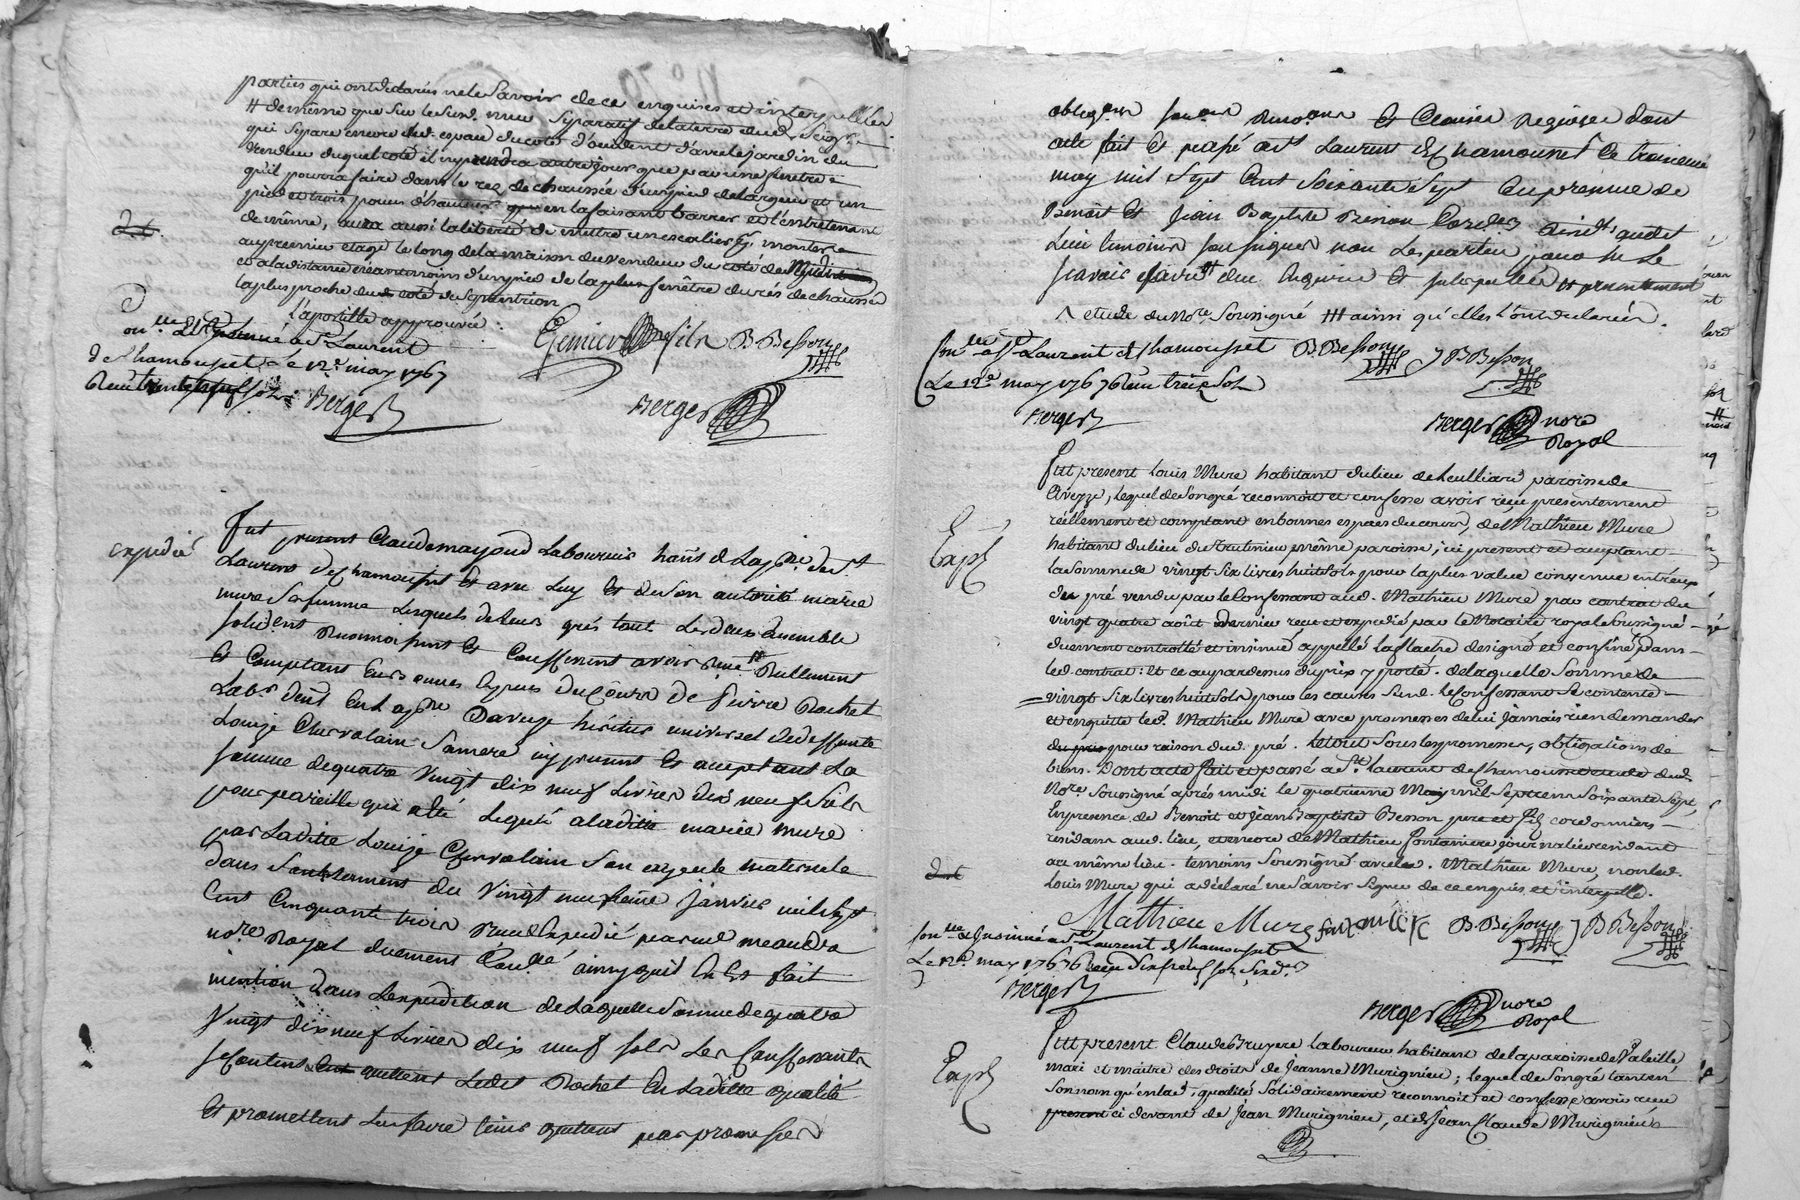 parties qui ont declarés ne le savoir de ce enquises et interpellées
# de même que sur le surd. mur separatif de la terre dud. Seigr.
qui separe encore led. espau du coté d'occident d'avec le jardin du
vendeur duquel coté il ny prendra autre jour que par une fenetre
qu'il pourra faire dans le rez de chaussée d'un pied de largeur et un
pied et trois pouces d'hauteur en la faisant barrer et l'entretenant
de même, aura aussi la liberté de mettre un escalier pr. monter
au premier etage le long de la maison du vendeur du coté de Mydi
et a la distance neantmoins d'un pied de la plus fenêtre du rés de chaussée
la plus proche du coté du septentrion
l'apostille approuvée :
a St. Laurent
de Chamousset le 12e. may 1767
Berger
fils B Besson
Berger
expedié
Fut present Claude mayoud Laboureur hant. de La pse. de St.
Laurent de Chamousset et avec Luy et de son autorité marie
mure sa femme Lesquels de leurs grés tout Les deux ensemble
solident. reconnoissent et Confessent avoir reçu Reellement
et Comptant En bonnes Especes du Cours de Pierre Rochet
Labr. dent. En La pse. Daveize heritier universel de deffunte
Louize Chervolain Sa mere icy present et acceptant La
somme de quatre Vingt dix neuf Livres dix neuf sols
pour pareille qui a eté Leguée a la ditte marie mure
par La ditte Louize Chervolain son ayeule maternelle
dans Son testement du Vingt neufieme Janvier mil sept
Cent Cinquante trois reçu et Expedié par me meandre
nore. Royal duement Conllé ainsy quil En Est fait
mention dans L'expedition de Laquelle Somme de quatre
Vingt dix neuf Livres dix neuf sols Les Confessants
se Contentent et quittent Ledit Rochet En La ditte qualité
et promettent Len faire tenir quittent par promesses
obligons soumons renons et Clauses requises dont
acte fait et passé a St. Laurent de Chamousset Le troisieme
may mil Sept Cent Soixante Sept En presence de
Benoit et Jean Baptiste Besson Cordrs residts. audit
Lieu temoins soussignes non Les parties pour ne Le
scavoir de ce Enquises et interpellées et presentement
^ etude du nore. Soussigné # ainsi qu'elles l'ont declarées.
Conlle. a St. Laurent de Chamousset B. Besson J B Besson
Le 12e. may 1767 Reçu treize sols
Berger
Berger nore
Royal
Expé
Fut present Louis Mure habitant du lieu de Leulliard paroisse de
Aveyze, lequel de son gré reconnoit et confesse avoir reçu presentement
réellement et comptant en bonnes especes du cours, de Mathieu Mure
habitant du lieu du même paroisse, ici present et acceptant
la somme de vingt six livres huit sols pour la plus value convenue entr'eux
du pré vendu par le Confessant aud. Mathieu Mure par contrat du
vingt quatre août dernier reçu et expedié par le Notaire royal soussigné
duement controllé et insinué appellé la flache designé et confiné dans
led. contrat : Et ce au pardessus du prix y porté . de laquelle somme de
vingt six livres huit sols pour les causes surd. le Confessant se contente
et en quitte led. Mathieu Mure avec promesse de lui jamais rien demander
pour raison dud. pré . le tout sous les promesses, obligations de
biens. Dont acte fait et passé a St. laurent de Chamousset etude dud.
Nore. Soussigné aprés midi le quatrieme May mil sept cens Soixante Sept,
En presence de Benoit et Jean Baptiste Besson pere et fils cordonniers
residans aud. lieu, et encore de Mathieu Pontanier journalier residant
au même lieu . temoins Soussignés avec led. Mathieu Mure, non led.
Louis Mure qui a déclaré ne savoir signer de ce enquis et interpellé.
Mathieu Mure B. Besson J B Besson
Conlle. et Insinué a St. Laurent de Chamousset
Le 12e. may 1767
Berger
Berger nore
Royal
Expé
Fut present Claude Bruyere laboureur habitant de la paroisse de Valeille
mari et maitre des droits de Jeanne Murignieu ; lequel de son gré tant en
son nom qu'en lad. qualité solidairement reconnoit et confesse avoir reçu
ci devant de Jean Murignieu, et de Jean Claude Murignieu